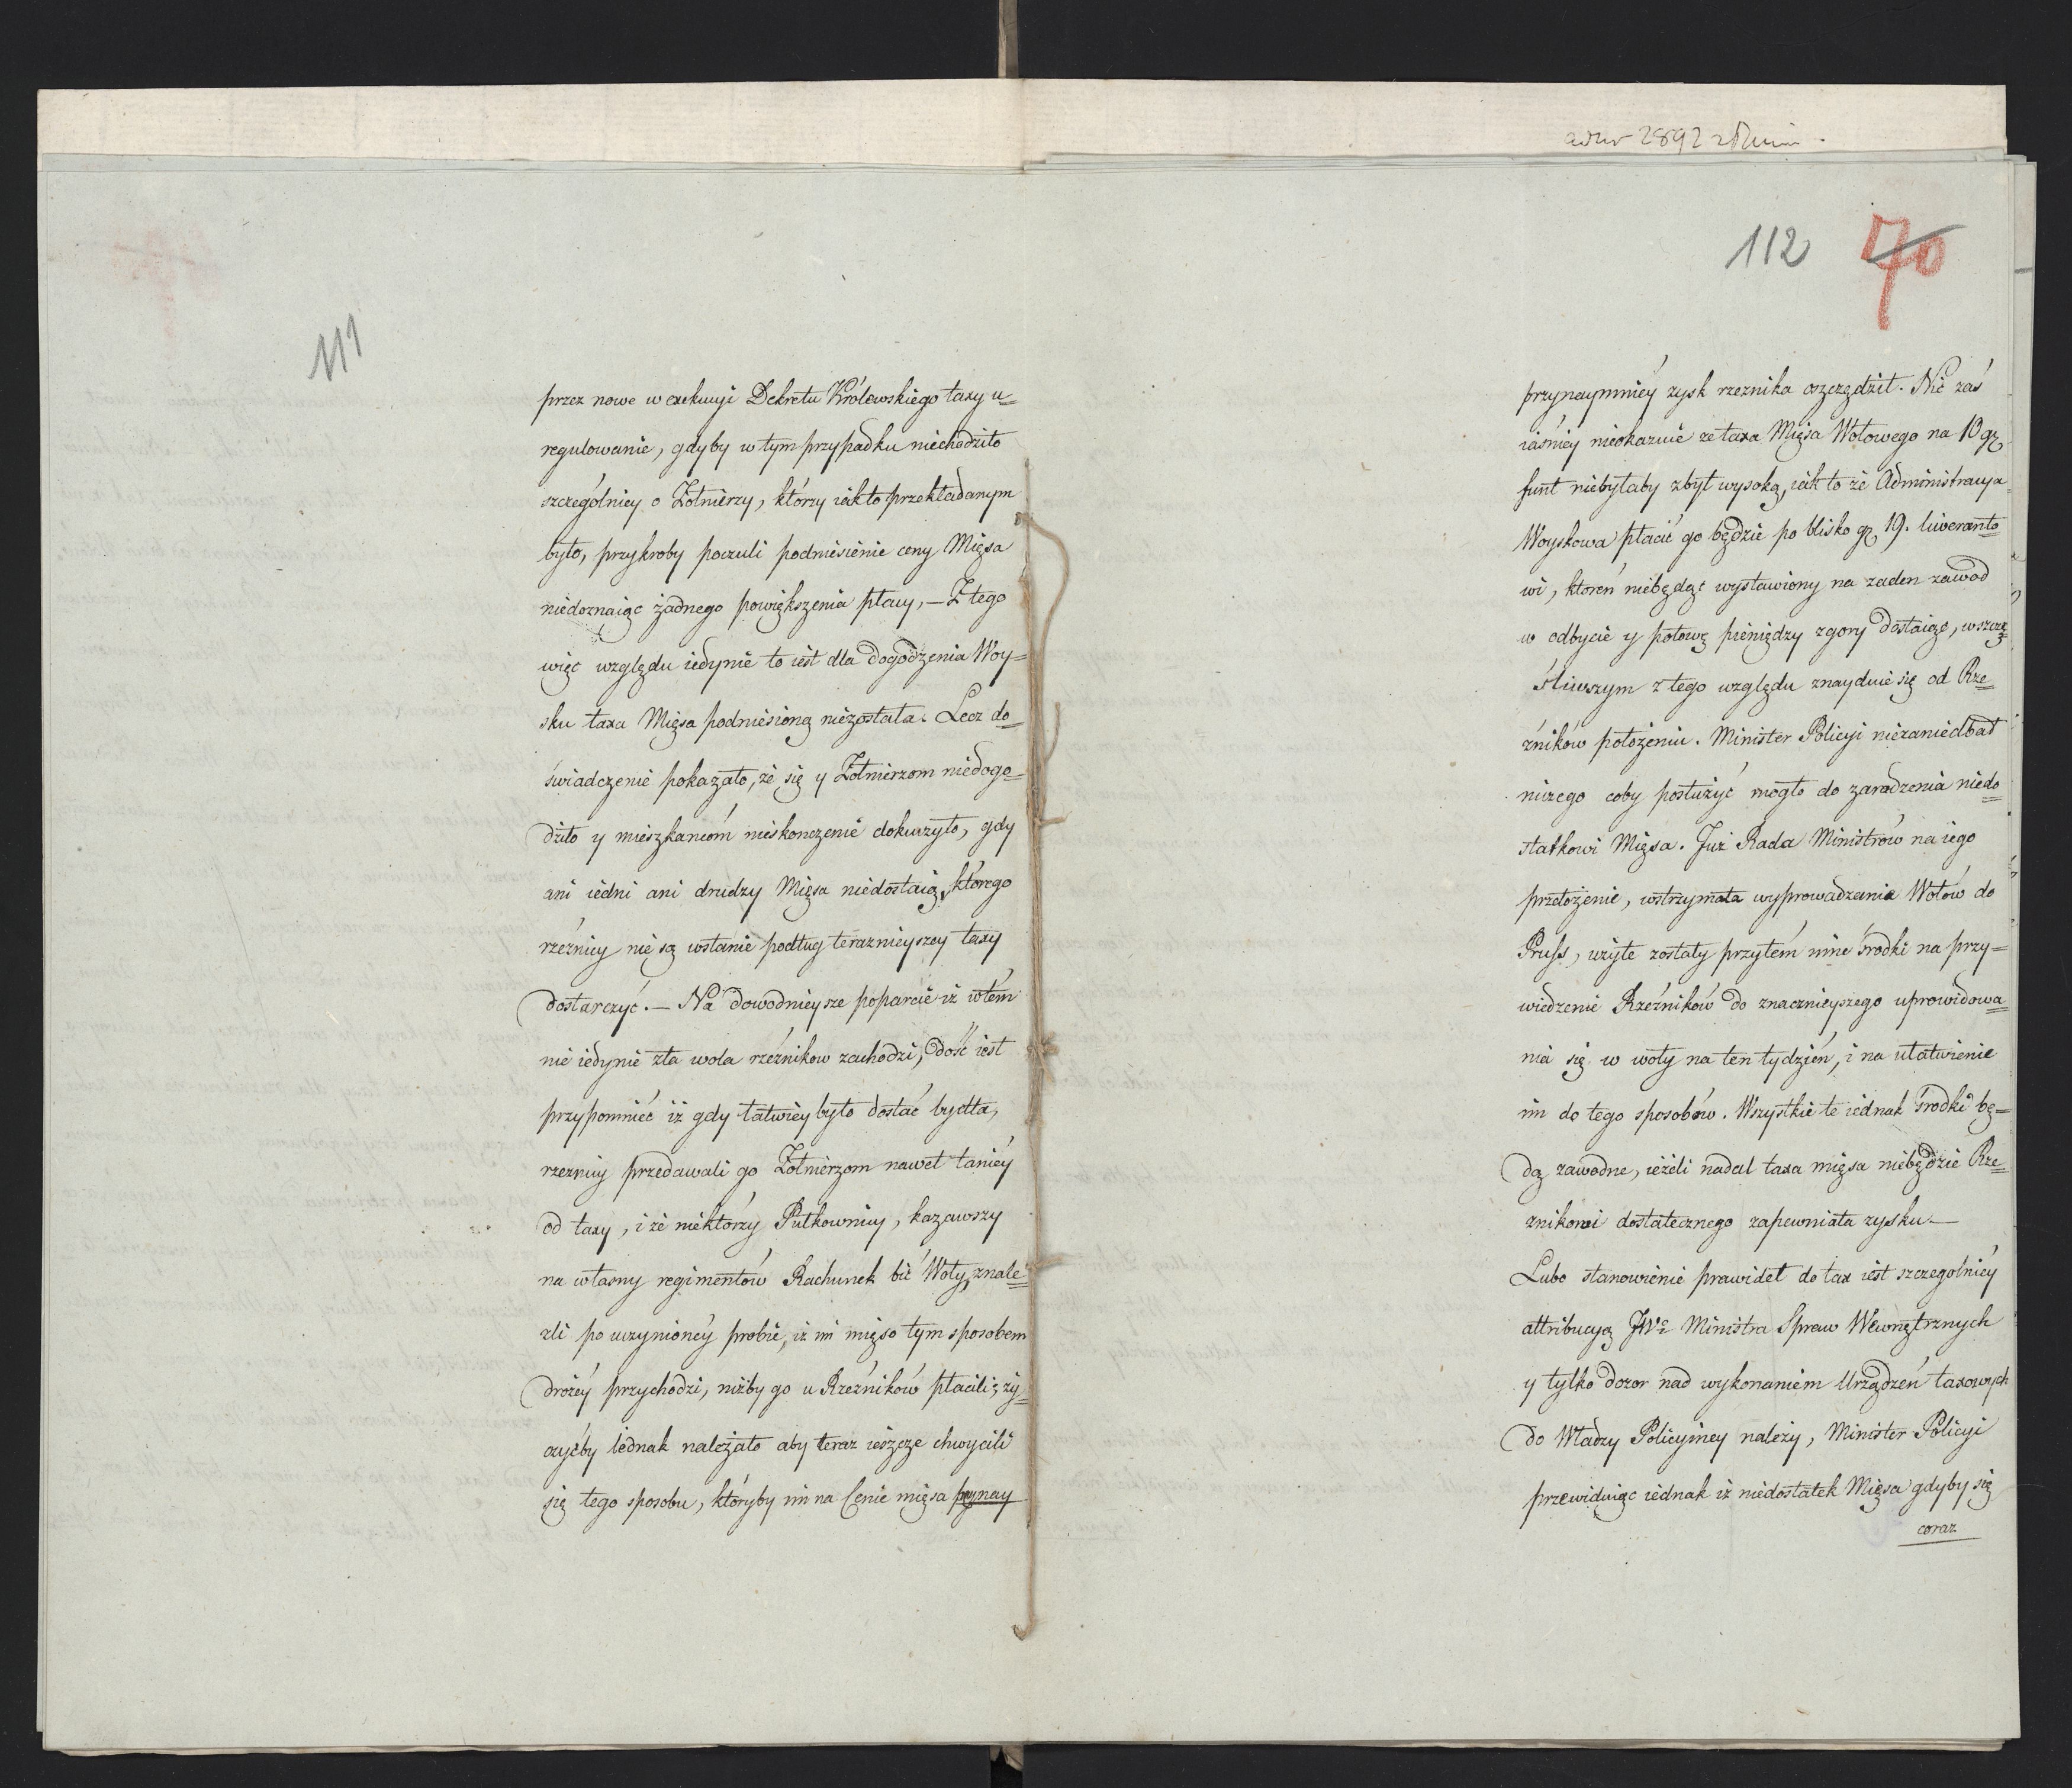 111
przez nowe w exekucyi Dekretu Królewskiego taxy u=
regulowanie, gdyby w tym przypadku niechodziło
szczególniey o Żołnierzy, którzy iak to przekładanym
było, przykroby poczuli podniesienie ceny Mięsa
niedoznaiąc żadnego powiększenia płacy, — Z tego
więc względu iedynie to iest dla dogodzenia Woy=
sku taxa Mięsa podniesioną niezostała. Lecz do=
świadczenie pokazało, że się y Żołnierzom niedogo=
dziło y mieszkańcóm nieskonczenie dokuczyło, gdy
ani iedni ani drudzy Mięsa niedostaią, którego
rzeźnicy nie są wstanie podług teraznieyszey taxy
dostarczyć. — Na dowodnieysze poparcie iż wtém
nie iedynie zła wola rzéźnikow zachodzi, dość iest
przypomnieć iż gdy łatwiey było dostać bydła,
rzeznicy przedawali go Żołnierzom nawet taniéy
od taxy, i że niektórzy Pułkownicy, kazawszy
na własny regimentów Rachunek bić Woły, znale=
zli po uczynionéy probie, iż im mięso tym sposobem
drożéy przychodzi, niżby go u Rzeźników płacili; ży=
czyćby iednak należało aby teraz ieszcze chwycili
się tego sposobu, któryby im na Cenie mięsa przynay
112 70
przynaymniéy zysk rzeznika oszczędził. Nic zaś
iaśniey nieokazuie ze taxa Mięsa Wołowego na 10 gr.
funt niebyłaby zbyt wysoką, iak to że Administracya
Woyskowa płacić go będzie po blisko gr. 19. liweranto=
wi, ktoren niebędąc wystawiony na zaden zawod
w odbycie y połowę pieniędzy zgory dostaiąc, w szczę=
śliwszym z tego względu znayduie się od Rze=
źników położeniu. Minister Policyi niezaniedbał
niczego coby posłużyć mogło do zaradzenia niedo=
statkowi Mięsa. Już Rada Ministrów na iego
przełożenie, wstrzymała wyprowadzenia Wołów do
Pruss, użyte zostały przytém inne środki na przy=
wiedzenie Rzeźników do znacznieyszego uprowidowa=
nia się w woły na ten tydzień, i na ułatwienie
im do tego sposobów. Wszystkie te iednak środki bę=
dą zawodne, ieżeli nadal taxa mięsa niebędzie Rze=
znikowi dostatecznego zapewniała zysku. —
Lubo stanowienie prawideł do tax iest szczególniéy
attribucyą JWo Ministra Spraw Wewnętrznych
y tylko dozor nad wykonaniem Urządzeń taxowych
do Władzy Policyiney należy, Minister Policyi
przewiduiąc iednak iż niedostatek Mięsa gdyby się
coraz